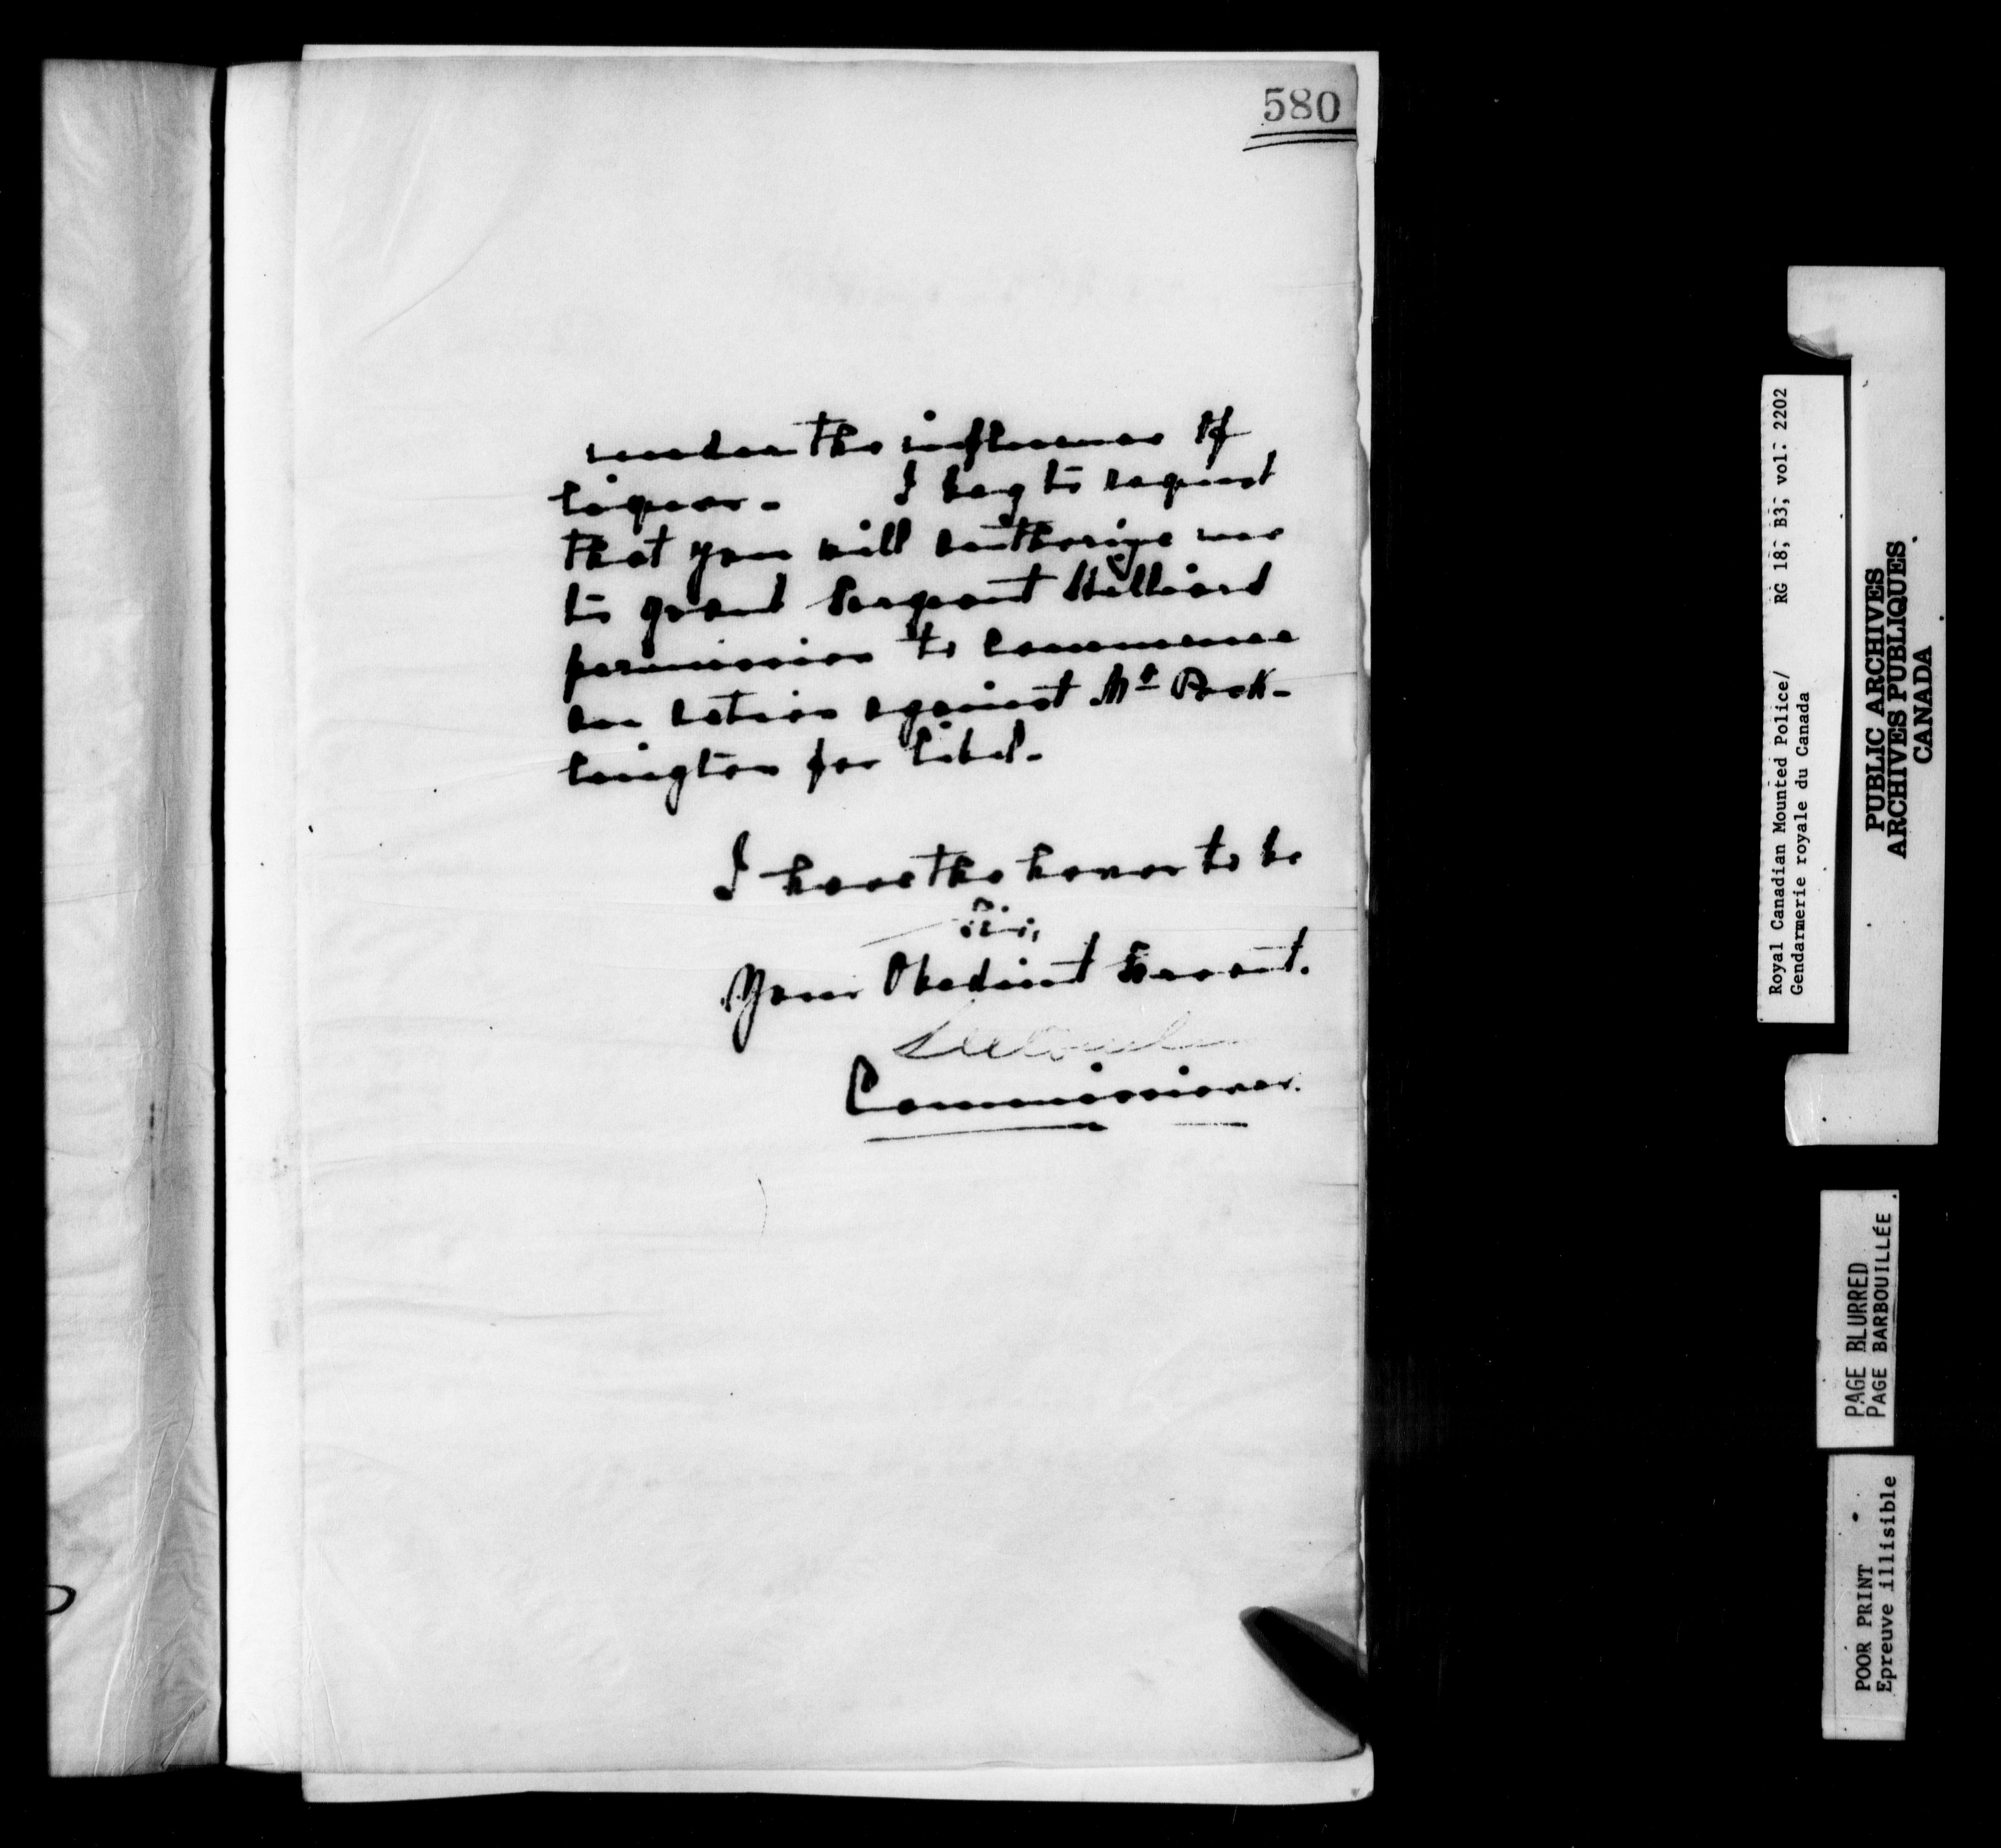 580
under the influence of
liquor. I beg to request
that you will authorize me
to grant Sergeant Hilliard
permission to commence
an action against Mr Pock-
lington for libel.
I have the honor to be
Sir,
Your Obedient Servant.
Commissioner.
Royal Canadian Mounted Police/ RG 18, B3, vol. 2202
Gendarmerie royale du Canada
PUBLIC ARCHIVES
ARCHIVES PUBLIQUES
CANADA
PAGE BLURRED
PAGE BARBOUILLÉE
POOR PRINT
Epreuve illisible